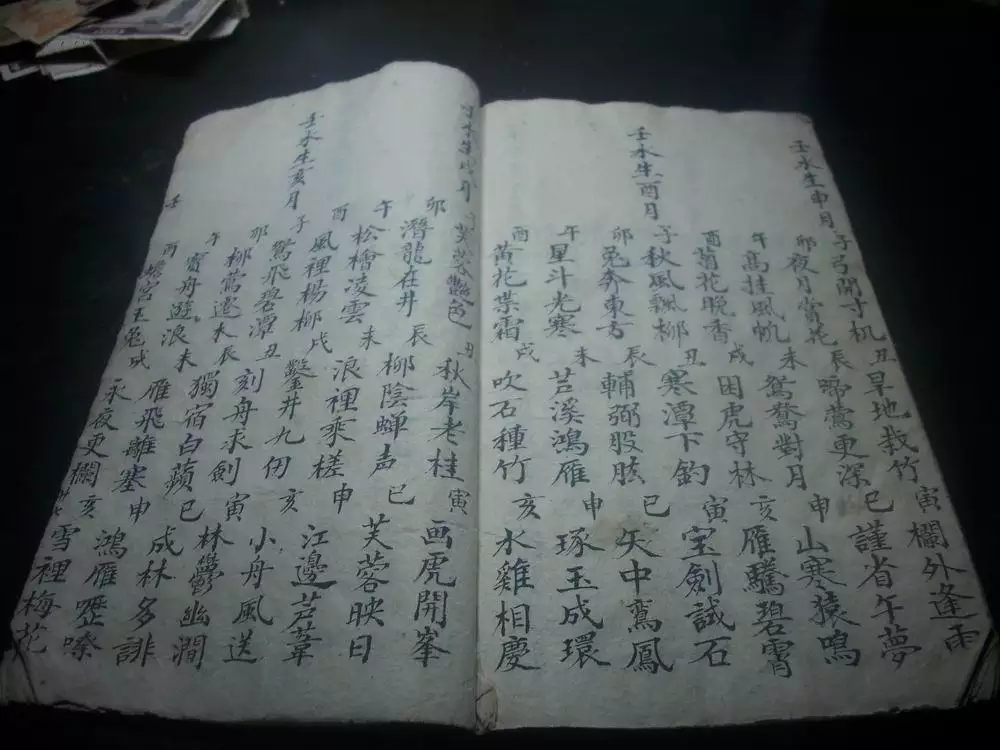 壬水生申月
子弓開寸机 丑旱地栽竹 寅欄外逢雨
卯夜月賞花 辰啼鶯更深 巳謹省午夢
午高挂風帆 未鴛鴦對月 申山寒猿鳴
酉菊花晚香 戌困虎守林 亥雁騰碧霄
壬水生酉月
子秋風飄柳 丑寒潭下釣 寅宝劍試石
卯兔奔東方 辰輔弼股肱 巳矢中鸞鳳
午星斗光寒 未芦溪鴻雁 申琢玉成環
酉黄花業霜 戌吹石種竹 亥水雞相慶
壬水生戌月
芙蓉艷色 丑秋岸老桂 寅画虎開峯
卯潛龍在井 辰柳陰蝉声 巳芙蓉映日
午松檜凌雲 未浪裡乘槎 申江邊芦葦
酉風裡楊柳 戌鑿井九仞 亥小舟風送
壬水生亥月
子鴛飛碧潭 丑刻舟求劍 寅林鬱幽澗
卯柳鶯遷木 辰獨宿白蘋 巳成林多誹
午賓舟遊浪 未雁飛離塞 申鴻雁嚦嗦
酉蟾宮玉兔 戌永夜更欄 亥雪裡梅花
壬